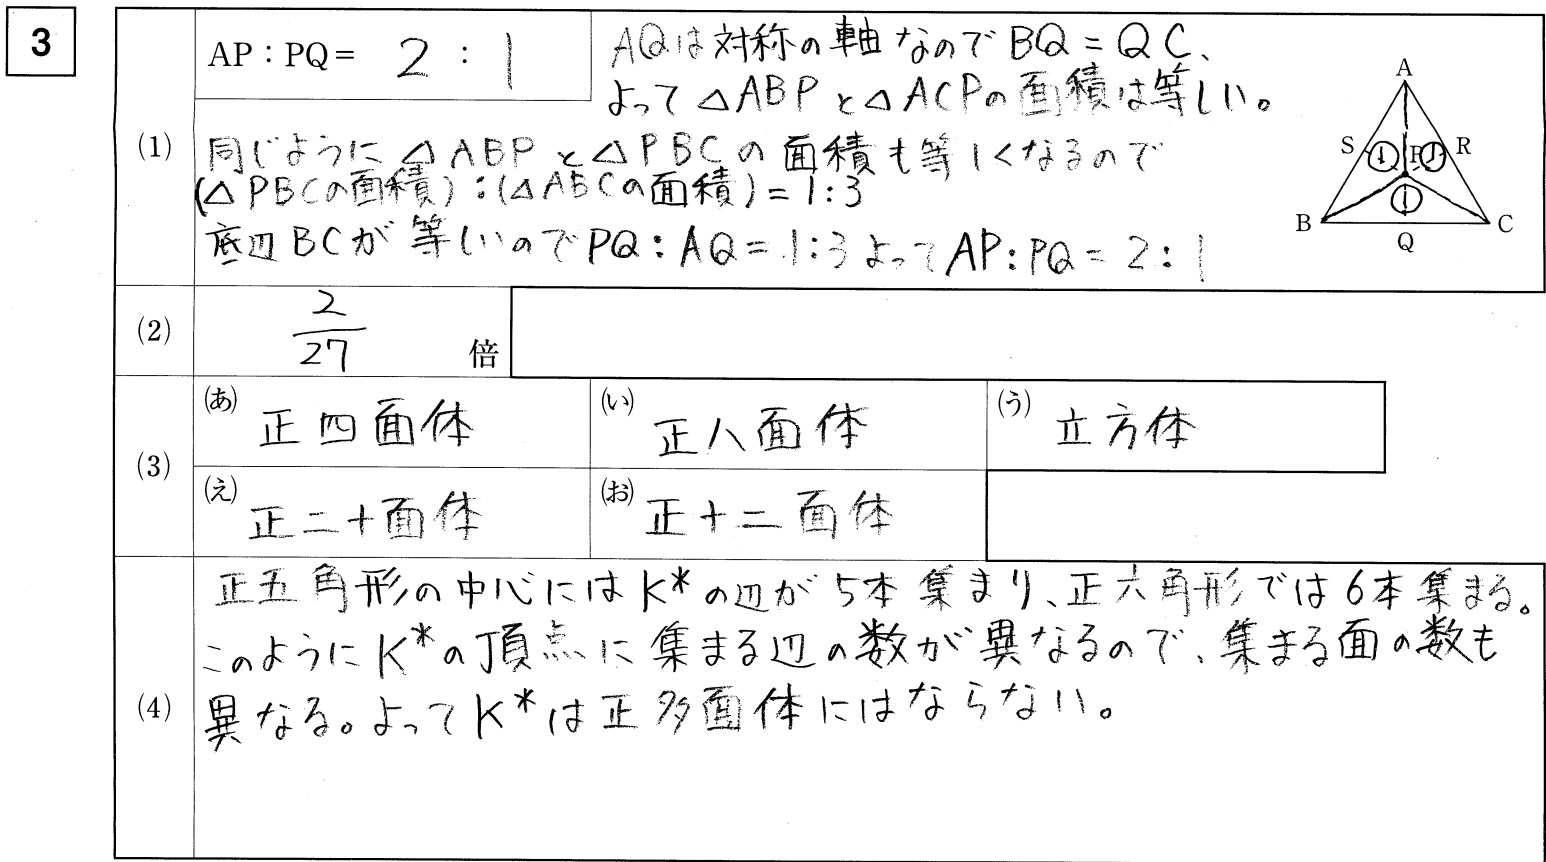 3
(1)
AP : PQ = 2 : 1
AQは対称の軸なのでBQ = QC、
よって△ABPと△ACPの面積は等しい。
同じように△ABPと△PBCの面積も等しくなるので
(△PBCの面積) : (△ABCの面積) = 1 : 3
底辺BCが等しいのでPQ : AQ = 1 : 3 よって AP : PQ = 2 : 1
A
S ① P ① R
①
B Q C
(2)
2/27 倍
(3)
(あ) 正四面体
(い) 正八面体
(う) 立方体
(え) 正二十面体
(お) 正十二面体
(4)
正五角形の中心にはK*の辺が5本集まり、正六角形では6本集まる。
このようにK*の頂点に集まる辺の数が異なるので、集まる面の数も
異なる。よってK*は正多面体にはならない。